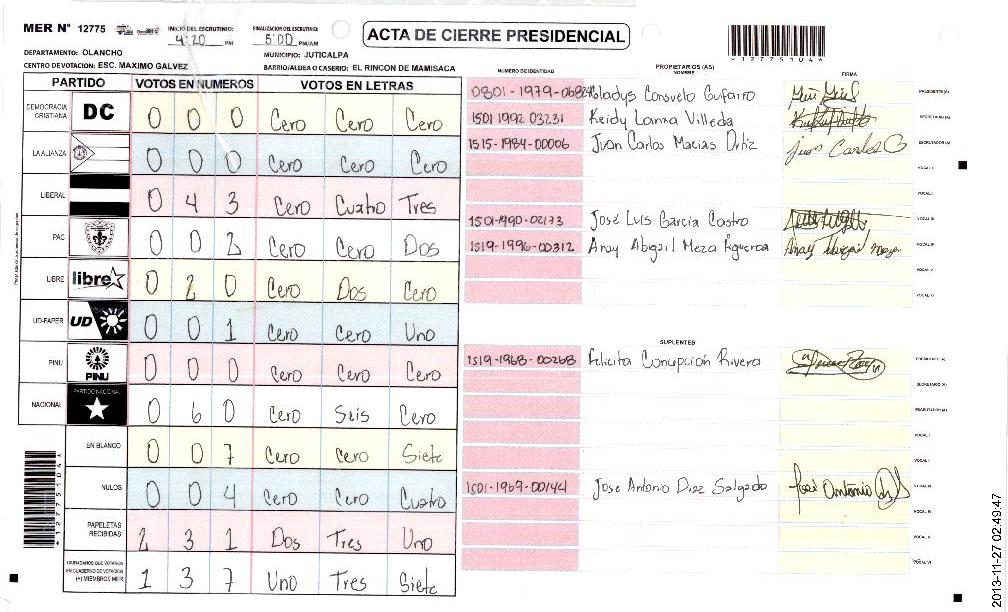 MER N° 12775
INICIO DEL ESCRUTINIO: 4:20 PM
FINALIZACION DEL ESCRUTINIO: 5:00 PM/AM
ACTA DE CIERRE PRESIDENCIAL
*12775104*
DEPARTAMENTO: OLANCHO
MUNICIPIO: JUTICALPA
CENTRO DE VOTACION: ESC. MAXIMO GALVEZ
BARRIO/ALDEA O CASERIO: EL RINCON DE MAMISACA
PARTIDO VOTOS EN NUMEROS VOTOS EN LETRAS
DEMOCRACIA CRISTIANA DC 0 0 0 Cero Cero Cero
LA ALIANZA 0 0 0 Cero Cero Cero
LIBERAL 0 4 3 Cero Cuatro Tres
PAC 0 0 2 Cero Cero Dos
LIBRE libre 0 2 0 Cero Dos Cero
UD-FAPER UD 0 0 1 Cero Cero Uno
PINU PINU 0 0 0 Cero Cero Cero
NACIONAL PARTIDO NACIONAL 0 6 0 Cero Seis Cero
EN BLANCO 0 0 7 Cero Cero Siete
NULOS 0 0 4 Cero Cero Cuatro
PAPELETAS RECIBIDAS 2 3 1 Dos Tres Uno
CIUDADANOS QUE VOTARON EN CUADERNO DE VOTACION (+) MIEMBROS MER 1 3 7 Uno Tres Siete
*12775104*
NUMERO DE IDENTIDAD PROPIETARIOS (AS) NOMBRE FIRMA
Gladys Consuelo Gufarro PRESIDENTE (A)
1501 1992 03231 Keidy Lanna Villeda SECRETARIO (A)
1515-1984-00006 Juan Carlos Macias Ortiz Juan Carlos O ESCRUTADOR (A)
VOCAL I
VOCAL II
1501-1990-02173 José Luis Garcia Castro VOCAL III
1519-1996-00312 Anay Abigail Meza Figueroa VOCAL IV
VOCAL V
VOCAL VI
SUPLENTES
1519-1968-00268 Felicita Concepción Rivera PRESIDENTE (A)
SECRETARIO (A)
ESCRUTADOR (A)
VOCAL I
VOCAL II
1501-1969-00144 Jose Antonio Diaz Salgado José Antonio VOCAL III
VOCAL IV
VOCAL V
VOCAL VI
2013-11-27 02:49:47